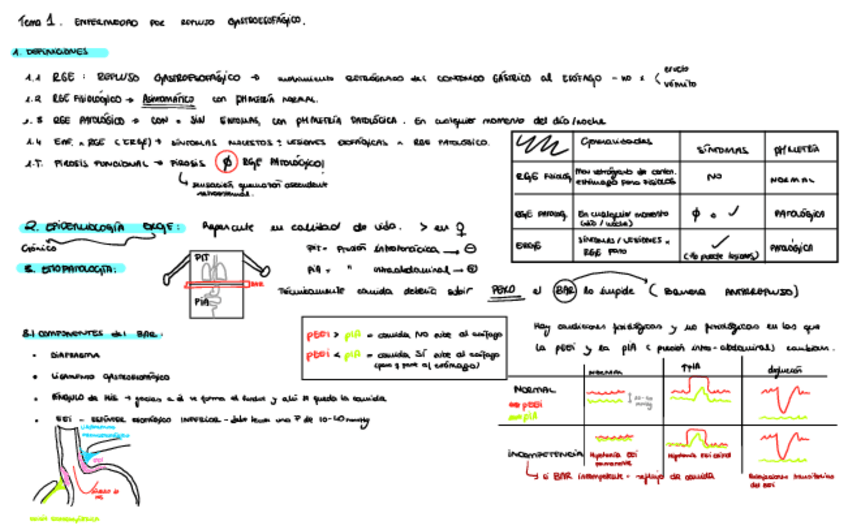 Tema 1. ENFERMEDAD POR REFLUJO GASTROESOFÁGICO.
1. DEFINICIONES
1.1 RGE: REFLUJO GASTROESOFÁGICO → movimiento RETRÓGRADO del CONTENIDO GÁSTRICO al ESÓFAGO - no x
eructo
vómito
1.2 RGE FISIOLÓGICO → Asintomático con PHMETRÍA NORMAL.
1.3 RGE PATOLÓGICO → CON o SIN SÍNTOMAS, con PHMETRÍA PATOLÓGICA. En cualquier momento del día/noche
1.4 ENF. x RGE (ERGE) → SÍNTOMAS MOLESTOS ± LESIONES ESOFÁGICAS x RGE PATOLÓGICO.
PIROSIS FUNCIONAL → PIROSIS Ø RGE PATOLÓGICO!
sensación quemazón ascendente
retroesternal.
Generalidades SÍNTOMAS PHMETRÍA
RGE Fisiológ. NO NORMAL
RGE Patológ. En cualquier momento (día / noche) Ø o ✓ PATOLÓGICA
ERGE SÍNTOMAS / LESIONES x RGE pato ✓ PATOLÓGICA
2. EPIDEMIOLOGÍA ERGE: Repercute en calidad de vida. > en ♀
Crónico
3. ETIOPATOLOGÍA:
PIT
BAR
PIA
PIT = Presión intratorácica → ⊖
PIA = " intraabdominal → ⊕
Técnicamente comida debería subir PERO el BAR lo impide (BARRERA ANTIRREFLUJO)
3.1 COMPONENTES del BAR:
• DIAFRAGMA
• LIGAMENTO GASTROESOFÁGICO
• ÁNGULO de HIS → gracias a él se forma el fundus y allí se queda la comida
• EEI - ESFÍNTER ESOFÁGICO INFERIOR - debe tener una P de 10-40 mmHg
pEEI > pIA = comida NO sube al esófago
pEEI < pIA = comida SÍ sube al esófago
Hay condiciones fisiológicas y no fisiológicas en las que
la pEEI y la pIA (presión intra-abdominal) cambian.
NORMAL ↑PIA deglución
NORMAL
pEEI
pIA
10-40
mmHg
INCOMPETENCIA
Hipotonía EEI
permanente
Relajaciones transitorias
del EEI
si BAR incompetente - reflujo de comida
EEI
Ángulo de
HIS